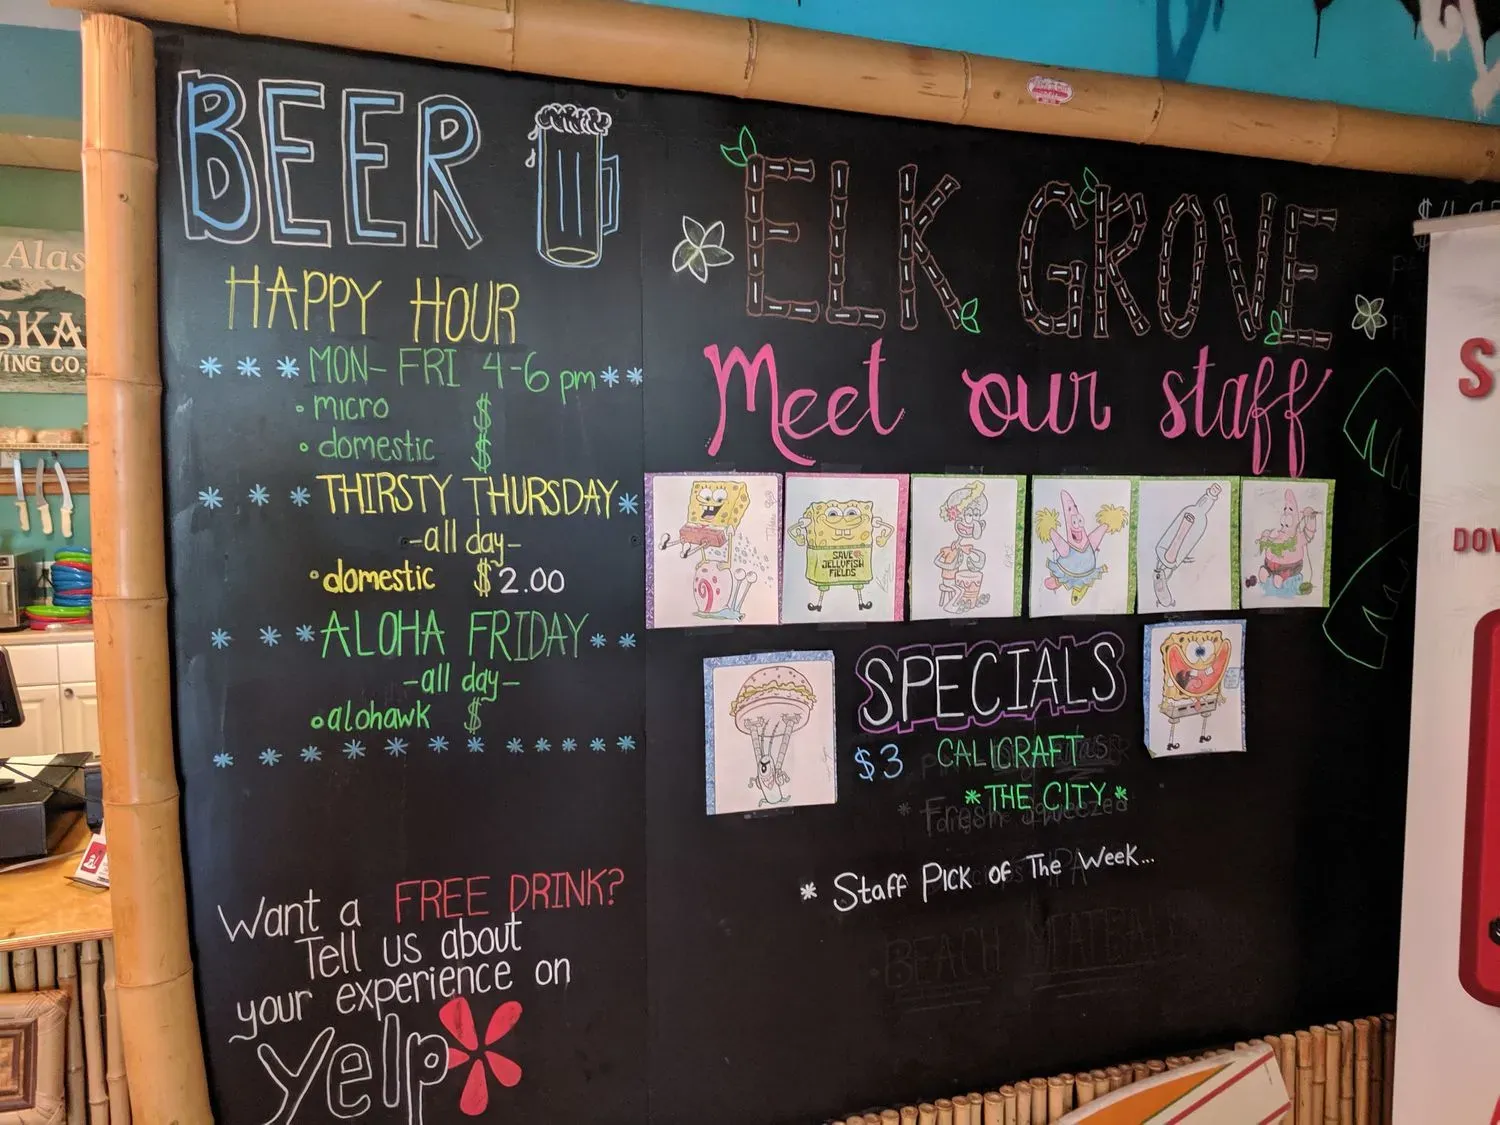 BEER
HAPPY HOUR
* * * MON-FRI 4-6 pm * *
• micro $
• domestic $
* * * THIRSTY THURSDAY *
-all day-
• domestic $2.00
* * * ALOHA FRIDAY * *
-all day-
• alohawk $
* * * * * * * * * *
Want a FREE DRINK?
Tell us about
your experience on
yelp
ELK GROVE
Meet our staff
SAVE
JELLYFISH
FIELDS
SPECIALS
$3 CALICRAFT
*THE CITY*
* Staff Pick of The Week...
Fresh Squeezed
IPA
BEACH
Alas
SKA
ING CO.
S
DOW